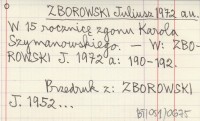 ZBOROWSKI Juliusz 1972 a.u.
W 15 rocznicę zgonu Karola
Szymanowskiego. — W: ZBO-
ROWSKI J. 1972 a: 190-192.
Przedruk z: ZBOROWSKI
J. 1952...